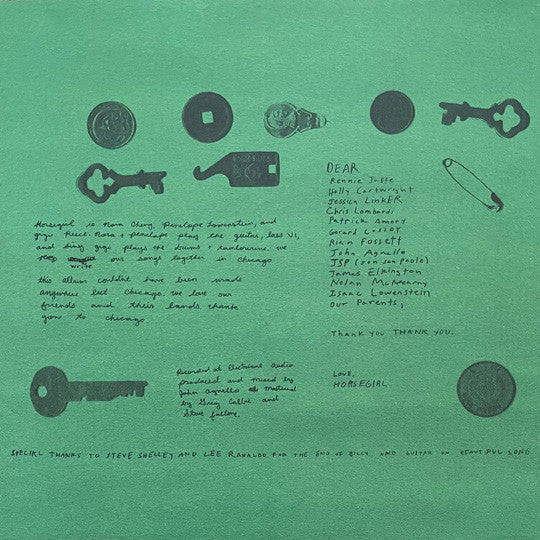 DEAR
Rennie Jaffe
Holly Cartwright
Jessica LinKER
Chris Lombardi
Patrick Amory
Gerard Cosloy
Rian Fossett
John Agnello
JSP (Jon San Paolo)
James Elkington
Nolan McNearny
Isaac Lowenstein
our Parents,
Thank you THANK YOU.
LOVE,
HORSEGIRL
Horsegirl is Nora Cheng, Penelope Lowenstein, and
gigi Reece. Nora + penelope play the guitar, bass VI,
and sing. gigi plays the drums + tambourine. we
write our songs together in Chicago
this album couldnt have been made
anywhere but Chicago. we love our
friends and their bands. thank
you to chicago
Recorded at Electrical Audio
produced and mixed by
John Agnello Mastered
by Greg Calbi and
Steve fallone.
SPECIAL THANKS TO STEVE SHELLEY AND LEE RANALDO FOR THE END OF BILLY AND GUITAR ON BEAUTIFUL SONG